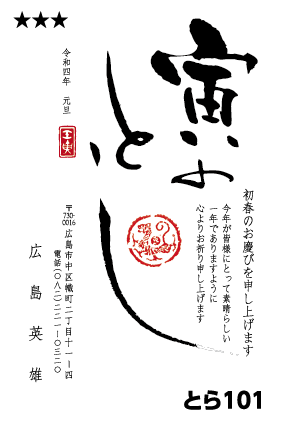 ★★★
寅のとし
初春のお慶びを申し上げます
今年が皆様にとって素晴らしい
一年でありますように
心よりお祈り申し上げます
令和四年 元旦
〒730-0016 広島市中区幟町二丁目十一ー四
電話(〇八二)二二一ー〇三二〇
広島英雄
とら101